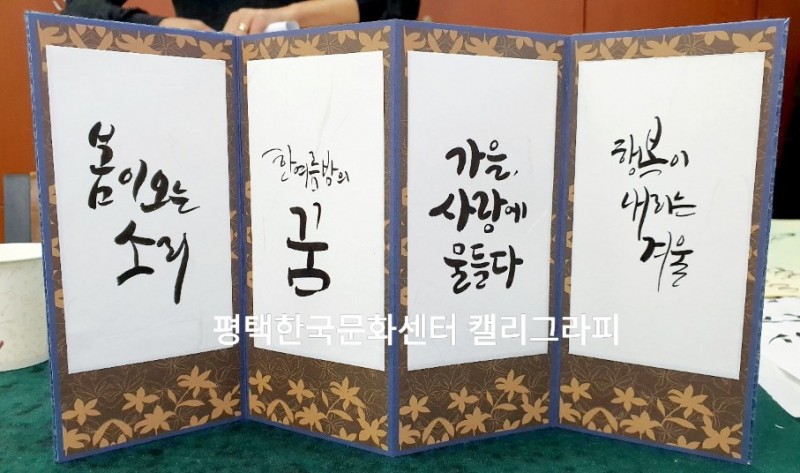 봄이오는
소리
한여름밤의
꿈
가을,
사랑에
물들다
행복이
내리는
겨울
평택한국문화센터 캘리그라피